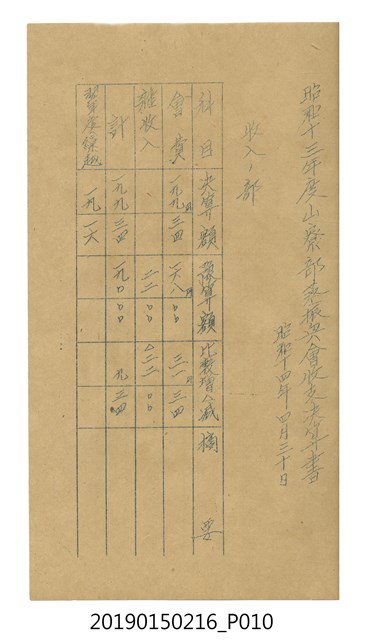 昭和十三年度山寮部落振興會收支決算書
昭和十四年四月三十日
收入ノ部
科目 決算額 豫算額 比較增減 摘要
會費 一九九円 三四 一六八円 〇〇 三一円 三四
雜收入 二二 〇〇 △二二 〇〇
計 一九九 三四 一九〇 〇〇 九 三四
翌年度繰越 一九 一六
20190150216_P010